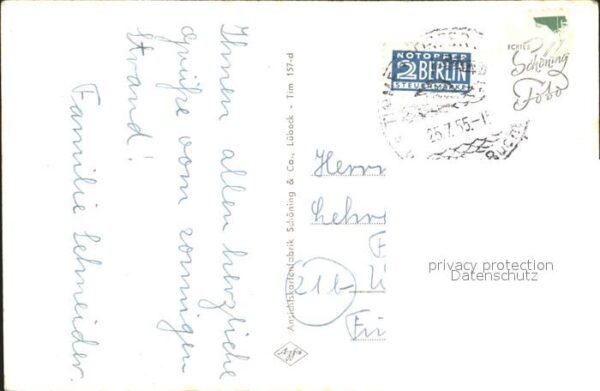 Ihnen allen herzliche
Grüße vom sonnigen
Strand!
Familie Schneider.
Ansichtskartenfabrik Schöning & Co., Lübeck - Tim 157-d
NOTOPFER
2 BERLIN
STEUERMARKE
25.7.55.-1
ECHTES
Schöning
Foto
Herrn
Lehre
21b
privacy protection
Datenschutz